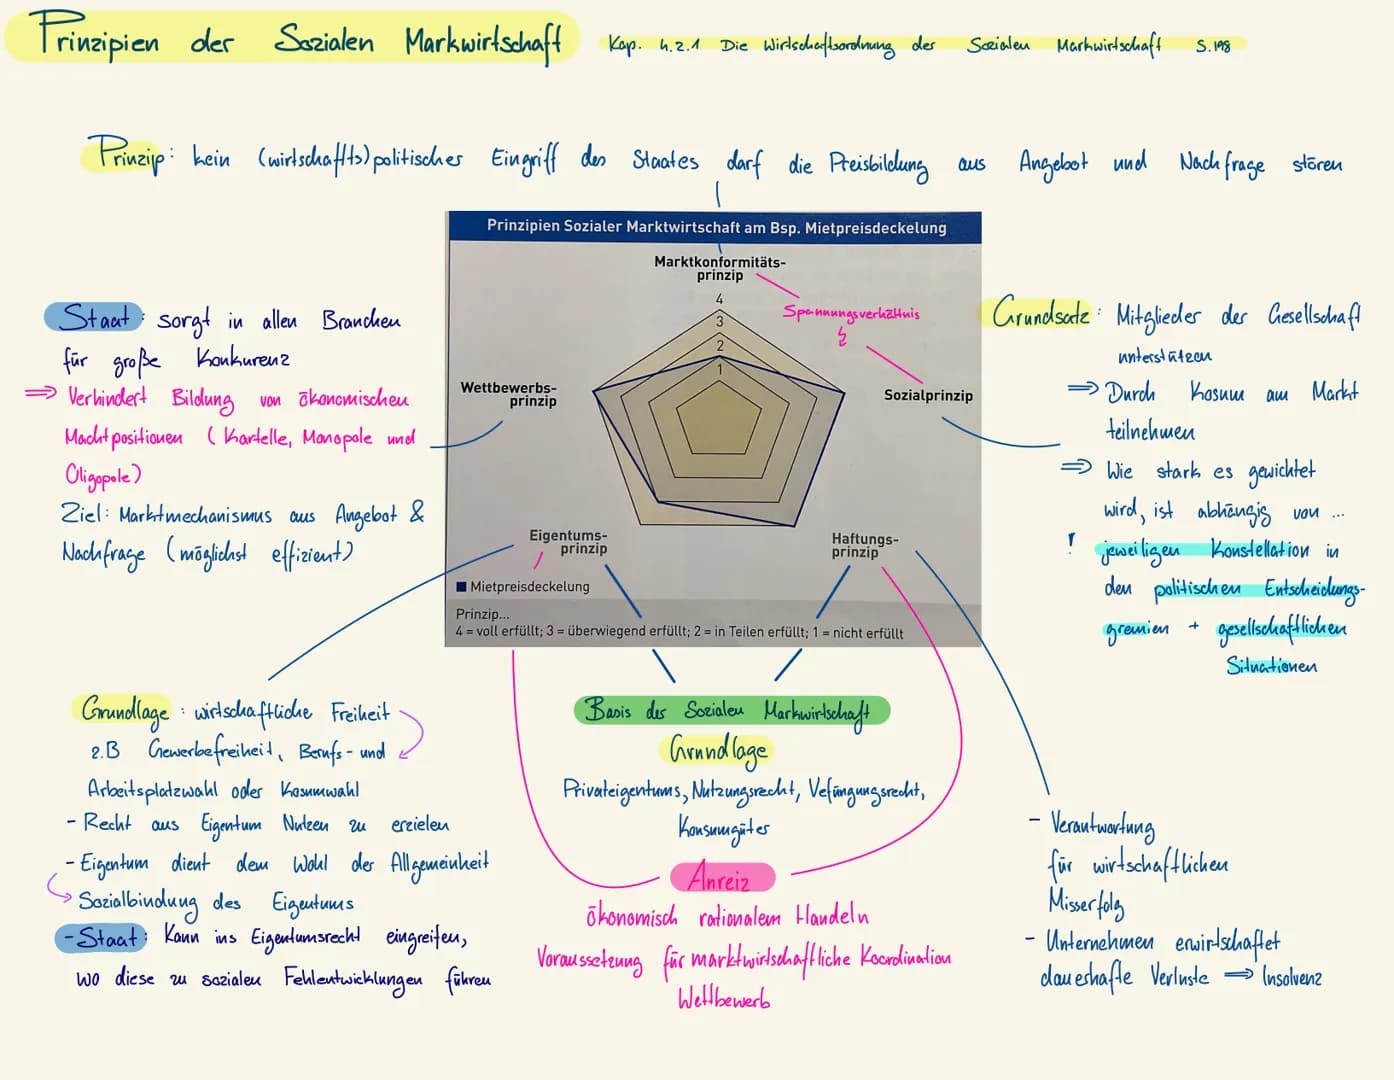 Prinzipien der Sozialen Markwirtschaft
Kap. 4.2.1 Die Wirtschaftsordnung der Sozialen Markwirtschaft S.198
Prinzip: kein (wirtschaftts)politischer Eingriff des Staates darf die Preisbildung aus Angebot und Nachfrage stören
Prinzipien Sozialer Marktwirtschaft am Bsp. Mietpreisdeckelung
Marktkonformitäts-
prinzip
4
3
2
1
Spannungsverhältnis
Wettbewerbs-
prinzip
Sozialprinzip
Eigentums-
prinzip
Haftungs-
prinzip
Mietpreisdeckelung
Prinzip...
4 = voll erfüllt; 3 = überwiegend erfüllt; 2 = in Teilen erfüllt; 1 = nicht erfüllt
Staat: sorgt in allen Branchen
für große Konkurenz
⇒ Verhindert Bildung von ökonomischen
Machtpositionen (Kartelle, Monopole und
Oligopole)
Ziel: Marktmechanismus aus Angebot &
Nachfrage (möglichst effizient)
Grundsatz: Mitglieder der Gesellschaft
unterstützen
⇒ Durch Kosum am Markt
teilnehmen
⇒ Wie stark es gewichtet
wird, ist abhängig von ...
! jeweiligen Konstellation in
den politischen Entscheidungs-
gremien + gesellschaftlichen
Situationen
Grundlage: wirtschaftliche Freiheit
z.B Gewerbefreiheit, Berufs- und
Arbeitsplatzwahl oder Kosumwahl
- Recht aus Eigentum Nutzen zu erzielen
- Eigentum dient dem Wohl der Allgemeinheit
Sozialbindung des Eigentums
- Staat: Kann ins Eigentumsrecht eingreifen,
wo diese zu sozialen Fehlentwicklungen führen
Basis der Sozialen Markwirtschaft
Grundlage
Privateigentums, Nutzungsrecht, Vefüngungsrecht,
Konsumgüter
Anreiz
ökonomisch rationalem Handeln
Voraussetzung für marktwirtschaftliche Koordination
Wettbewerb
- Verantwortung
für wirtschaftlichen
Misserfolg
- Unternehmen erwirtschaftet
daueshafte Verluste ⇒ Insolvenz